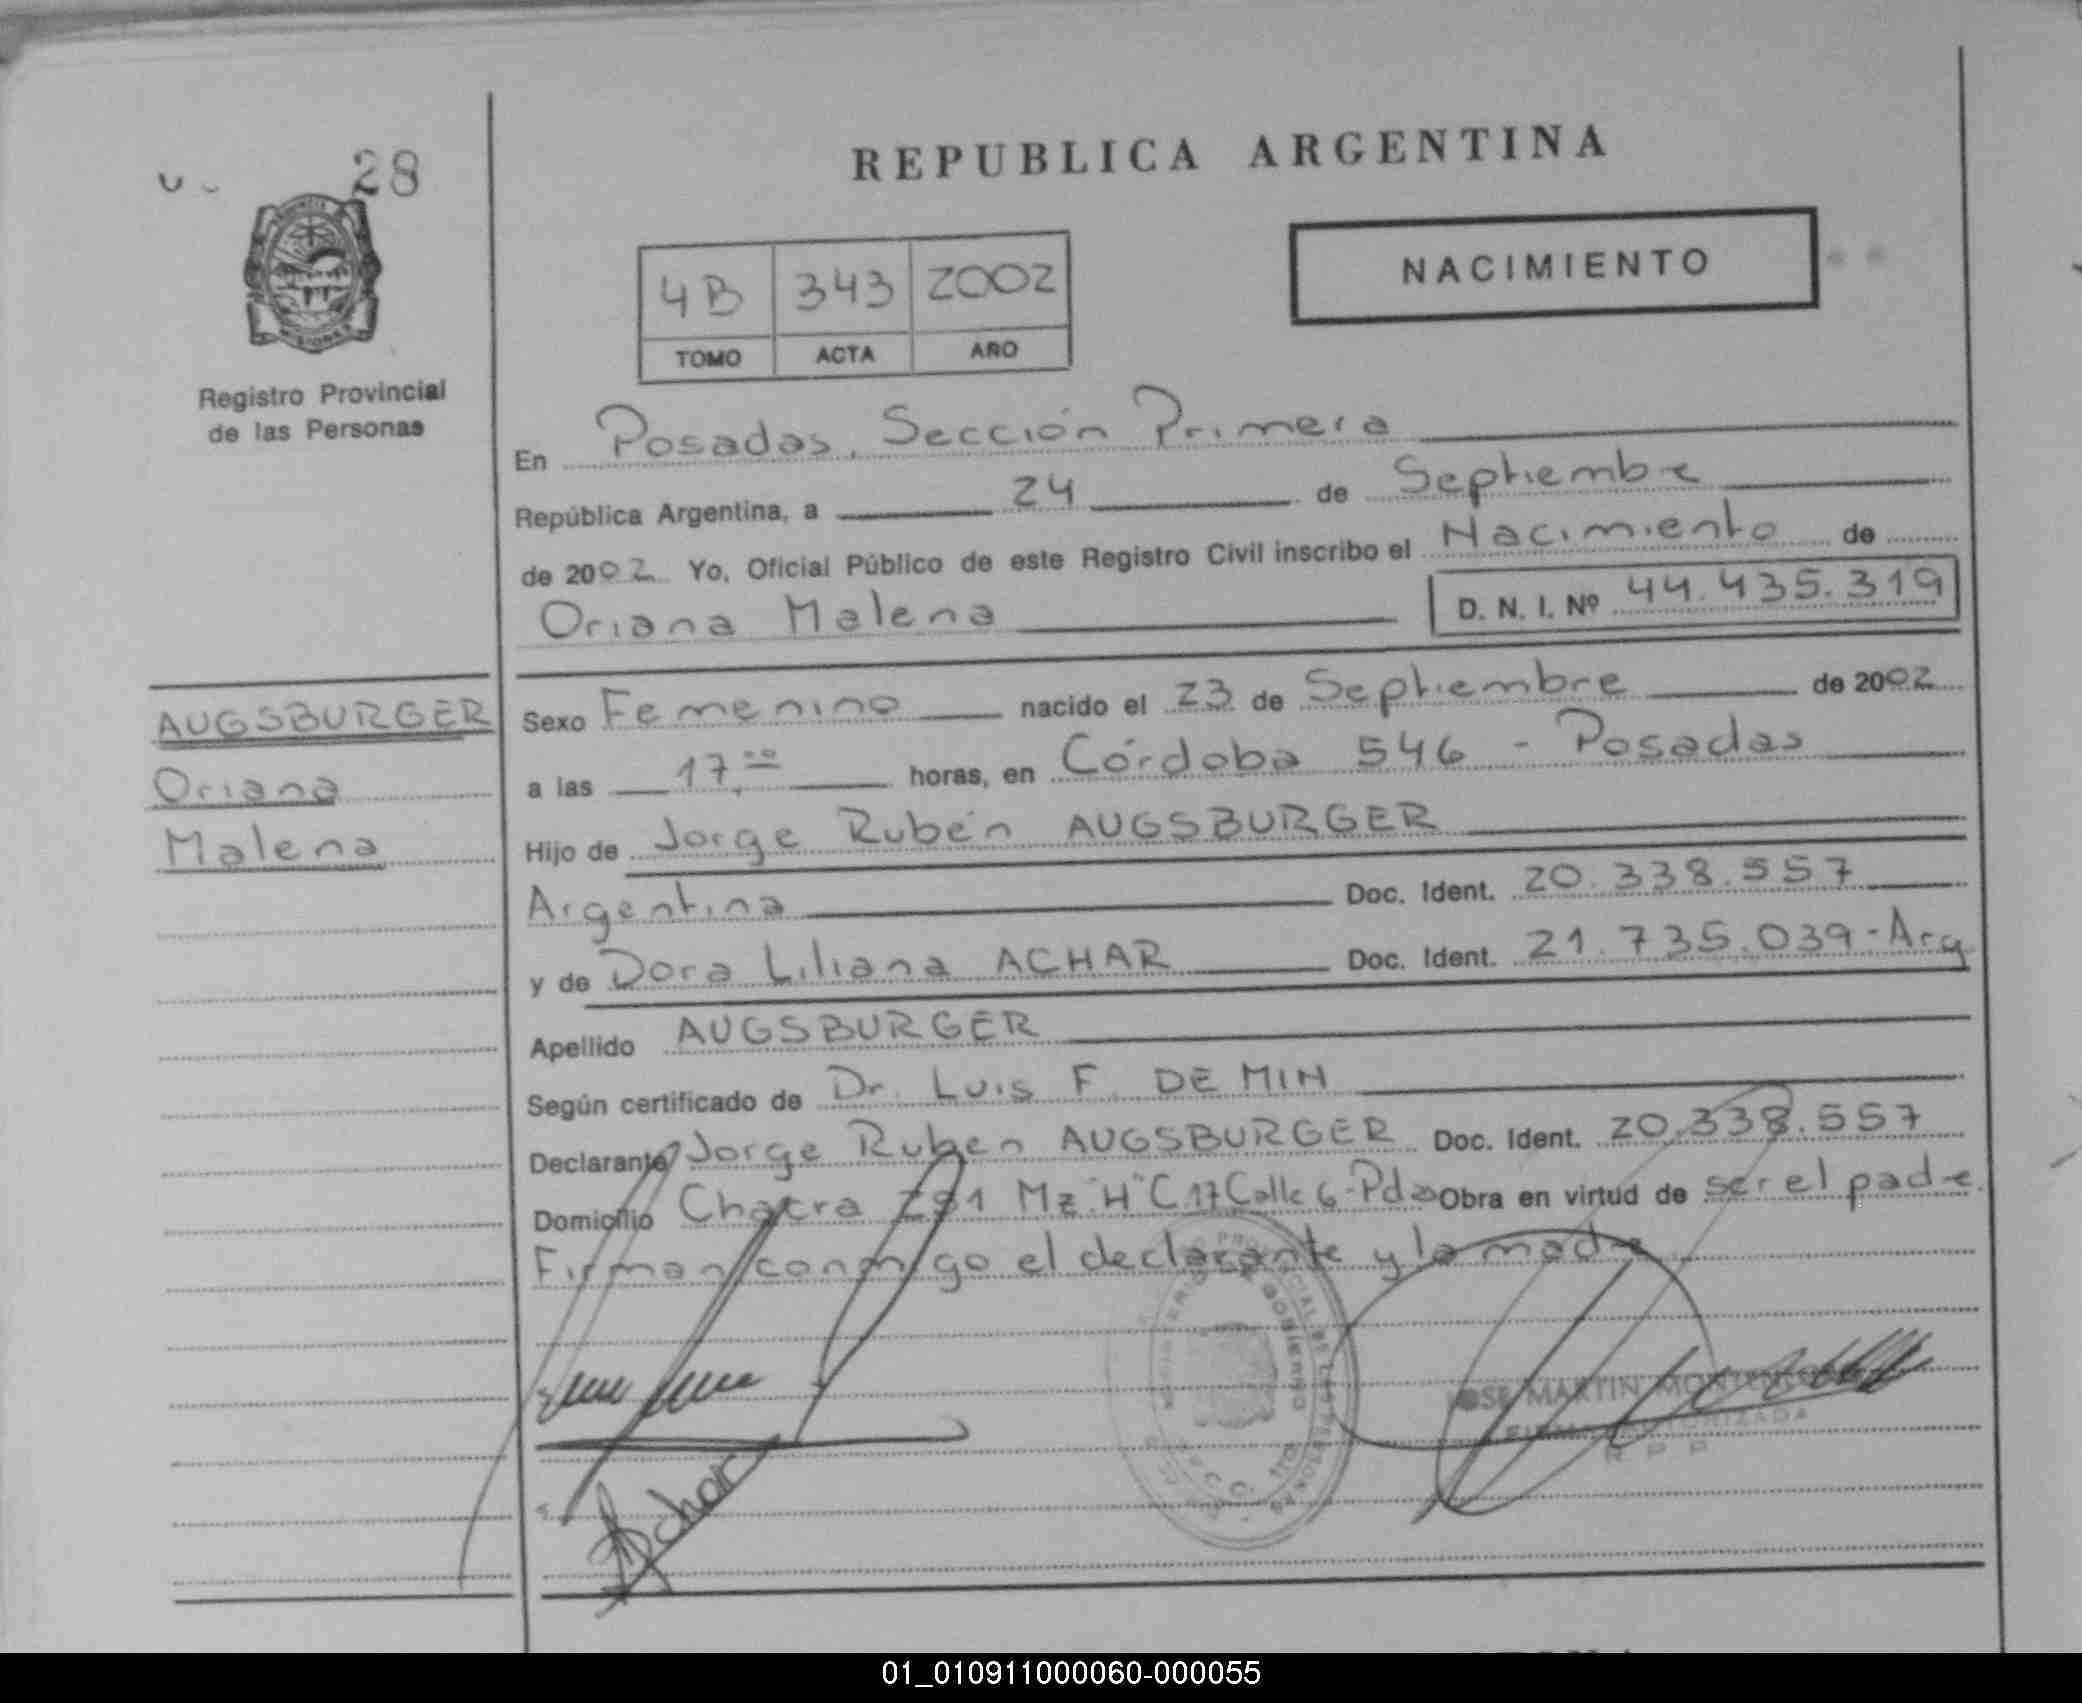 28
REPUBLICA ARGENTINA
NACIMIENTO
4B 343 2002
TOMO ACTA AÑO
Registro Provincial
de las Personas
En Posadas, Sección Primera
República Argentina, a 24 de Septiembre
de 2002 Yo, Oficial Público de este Registro Civil inscribo el Nacimiento de
Oriana Malena D. N. I. Nº 44.435.319
AUGSBURGER
Oriana
Malena
Sexo Femenino nacido el 23 de Septiembre de 2002
a las 17,00 horas, en Córdoba 546 - Posadas
Hijo de Jorge Rubén AUGSBURGER
Argentina Doc. Ident. 20.338.557
y de Dora Liliana ACHAR Doc. Ident. 21.735.039-Arg
Apellido AUGSBURGER
Según certificado de Dr. Luis F. DE MIN
Declarante Jorge Ruben AUGSBURGER Doc. Ident. 20.338.557
Domicilio Chacra 251 Mz "H" C.17 Calle 6-Pdas Obra en virtud de ser el padre.
Firman conmigo el declarante y la madre
JOSE MARTIN
FIRMA AUTORIZADA
R P P
Achar
01_010911000060-000055